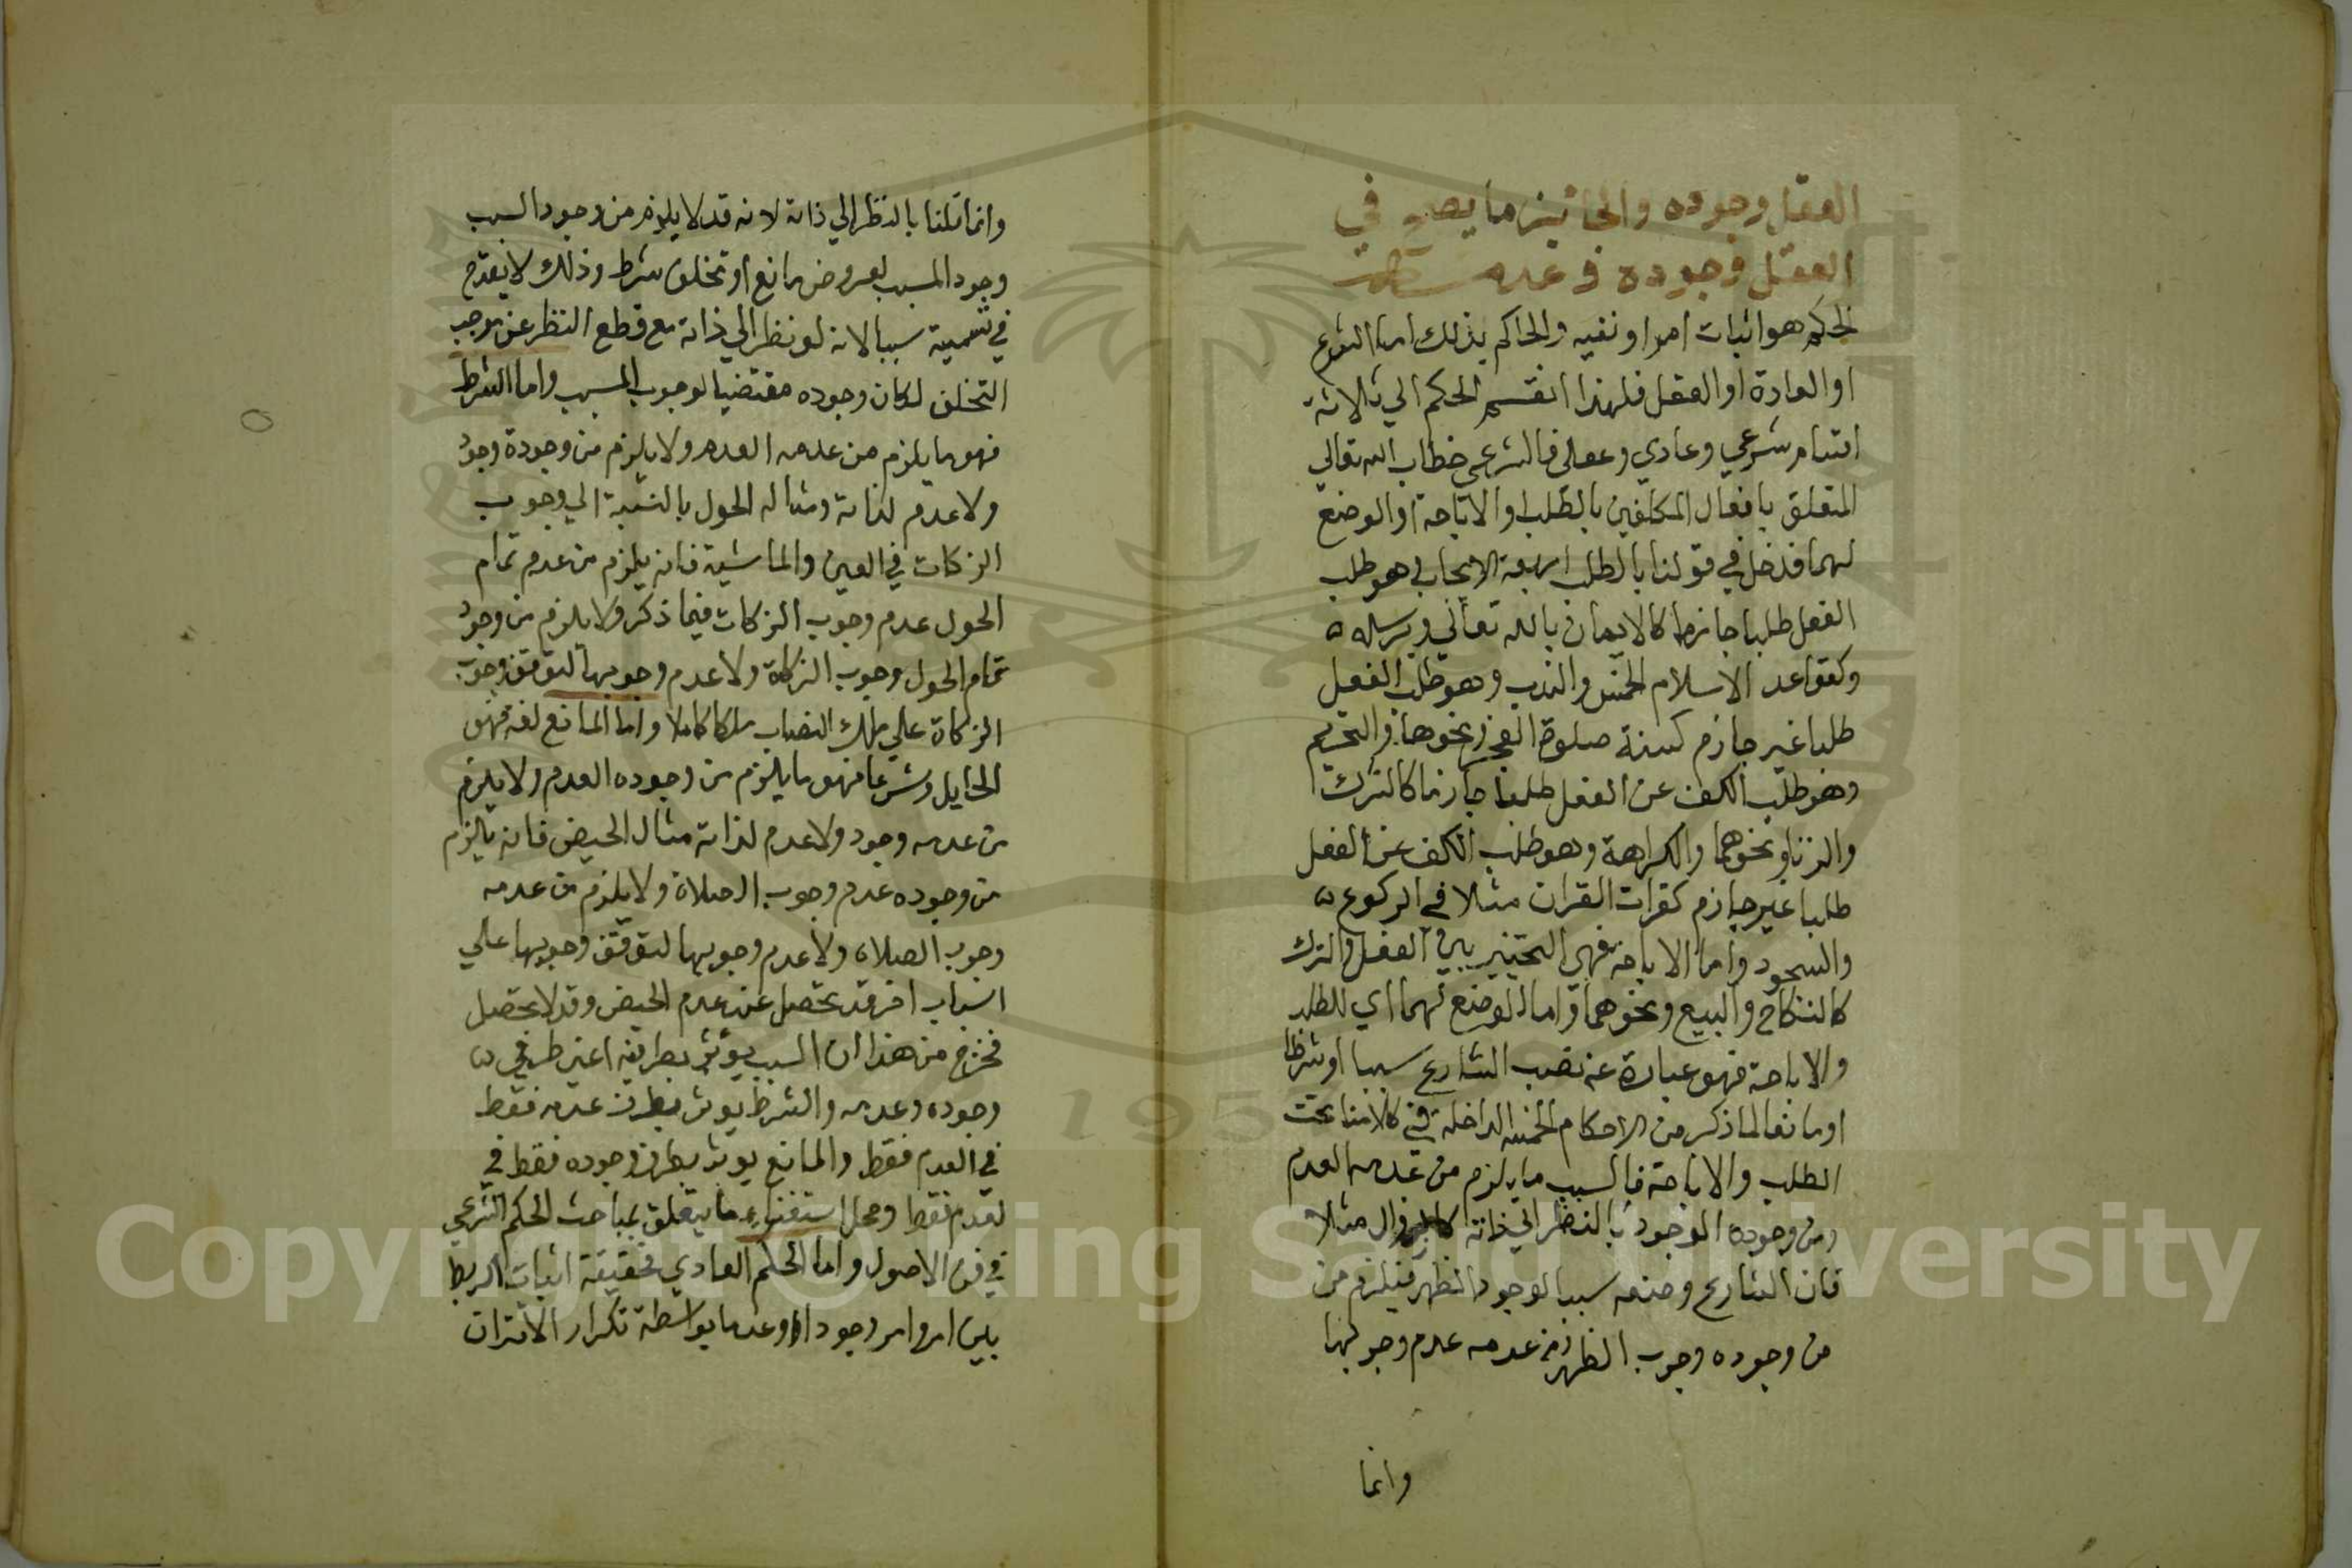 العقل وجوده والجائز ما يصح في
العقل وجوده وعدمه
الحكم هو اثبات امر او نفيه والحاكم بذلك اما الشرع
او العادة او العقل فلهذا انقسم الحكم الي ثلاثة
اقسام شرعي وعادي وعقلي فالشرعي خطاب الله تعالي
المتعلق بافعال المكلفين بالطلب او الاباحة او الوضع
لهما فدخل في قولنا بالطلب اربعة الايجاب وهو طلب
الفعل طلبا جازما كالايمان بالله تعالي وبرسله
وكقواعد الاسلام الخمس والندب وهو طلب الفعل
طلبا غير جازم كسنة صلوة الفجر ونحوها والتحريم
وهو طلب الكف عن الفعل طلبا جازما كالشرك
والزنا ونحوهما والكراهة وهو طلب الكف عن الفعل
طلبا غير جازم كقرات القران مثلا في الركوع
والسجود واما الاباحة فهي التخيير بين الفعل والترك
كالنكاح والبيع ونحوهما واما الوضع لهما اي للطلب
والاباحة فهو عبارة عن نصب الشارع سببا او شرطا
او مانعا لما ذكر من الاحكام الخمسة الداخلة في كلامنا تحت
الطلب والاباحة فالسبب ما يلزم من عدمه العدم
ومن وجوده الوجود بالنظر الي ذاته كالزوال مثلا
فان الشارع وضعه سببا لوجود الظهر فيلزم من
من وجوده وجوب الظهر ومن عدمه عدم وجوبها
وانما
وانما قلنا بالنظر الي ذاته لانه قد لا يلزم من وجود السبب
وجود المسبب لعروض مانع او تخلف شرط وذلك لا يقدح
في تسمية سببا لانه لو نظر الي ذاته مع قطع النظر عن موجب
التخلف لكان وجوده مقتضيا لوجوب المسبب واما الشرط
فهو ما يلزم من عدمه العدم ولا يلزم من وجوده وجود
ولا عدم لذاته ومثاله الحول بالنسبة الي وجوب
الزكات في العين والماشية فانه يلزم من عدم تمام
الحول عدم وجوب الزكات فيما ذكر ولا يلزم من وجود
تمام الحول وجوب الزكاة ولا عدم وجوبها لتوقف وجوب
الزكاة علي ملك النصاب ملكا كاملا واما المانع لغة فهو
الحايل وشرعا فهو ما يلزم من وجوده العدم ولا يلزم
من عدمه وجود ولا عدم لذاته مثال الحيض فانه يلزم
من وجوده عدم وجوب الصلاة ولا يلزم من عدمه
وجوب الصلاة ولا عدم وجوبها لتوقف وجوبها علي
اسباب اخر قد تحصل عند عدم الحيض وقد لا تحصل
فخرج من هذا ان السبب يؤثر بطرفيه اعني طرفي
وجوده وعدمه والشرط يوثر بطرف عدمه فقط
في العدم فقط والمانع يوثر بطرف وجوده فقط في
لعدم فقط ومحل استيفاء ما يتعلق بمباحث الحكم الشرعي
في فن الاصول واما الحكم العادي فحقيقة اثبات الربط
بين امر وامر وجودا او وعدما بواسطة تكرار الاقتران